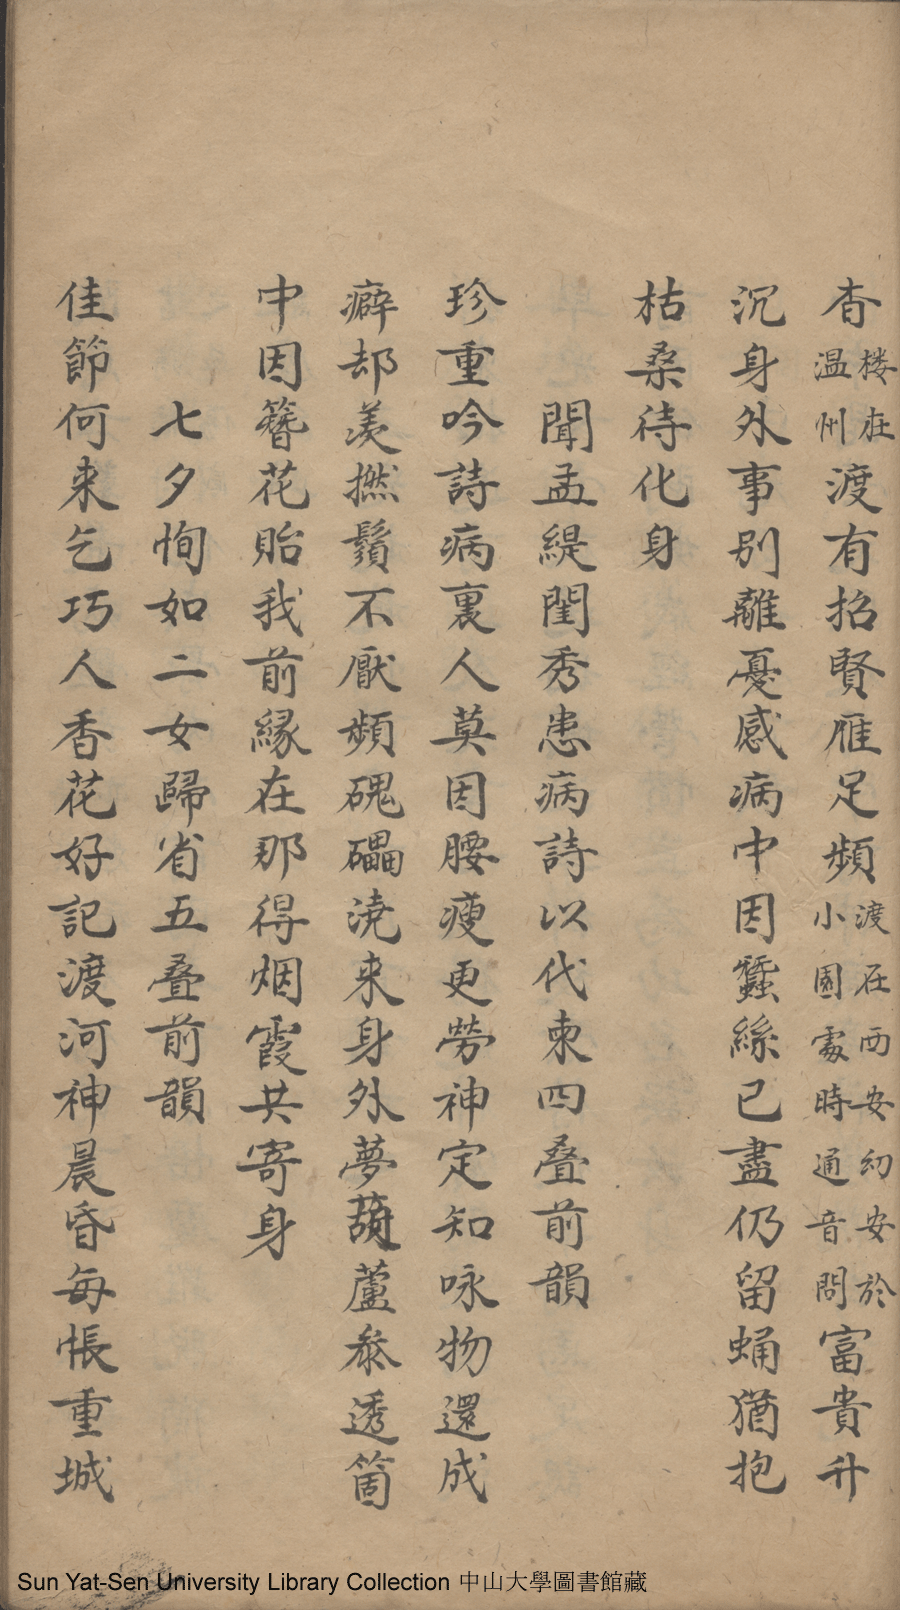 杳楼在温州渡有招賢雁足頻渡在西安幼安於小園處時通音問富貴升
沉身外事別離憂感病中因蠶絲已盡仍留蛹猶抱
枯桑待化身
聞孟緹閨秀患病詩以代柬四叠前韻
珍重吟詩病裏人莫因腰瘦更勞神定知咏物還成
癖却羨撚鬚不厭頻磈礧澆来身外夢葫蘆叅透箇
中因簪花貽我前縁在那得烟霞共寄身
七夕恂如二女歸省五叠前韻
佳節何来乞巧人香花好記渡河神晨昏每悵重城
Sun Yat-Sen University Library Collection 中山大學圖書館藏